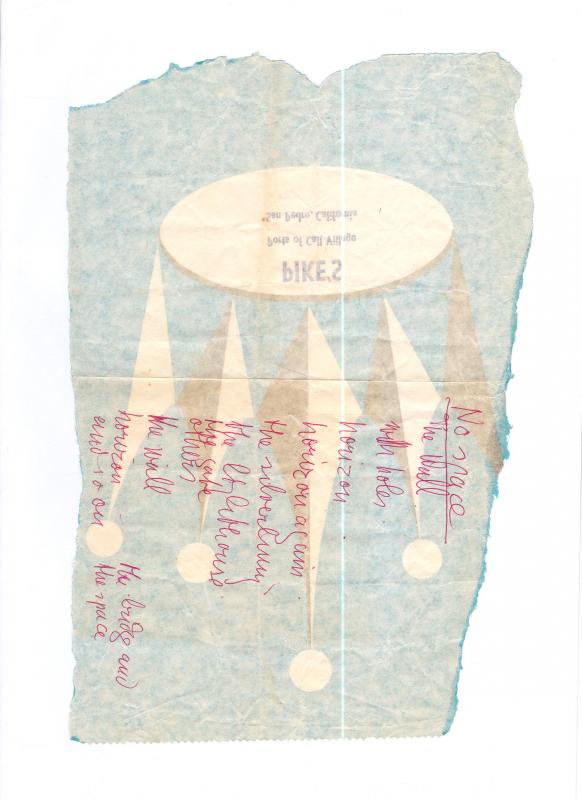 PIKE'S
Ports of Call Village
San Pedro, California
No space
the wall
with holes
horizon
horizon again
the silverlining
the lighthouse
the
the wall
horizon
and so on
the bridge and
the space